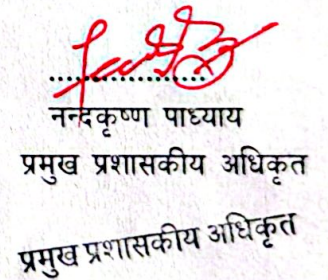 नन्दकृष्ण पाध्याय
प्रमुख प्रशासकीय अधिकृत
प्रमुख प्रशासकीय अधिकृत